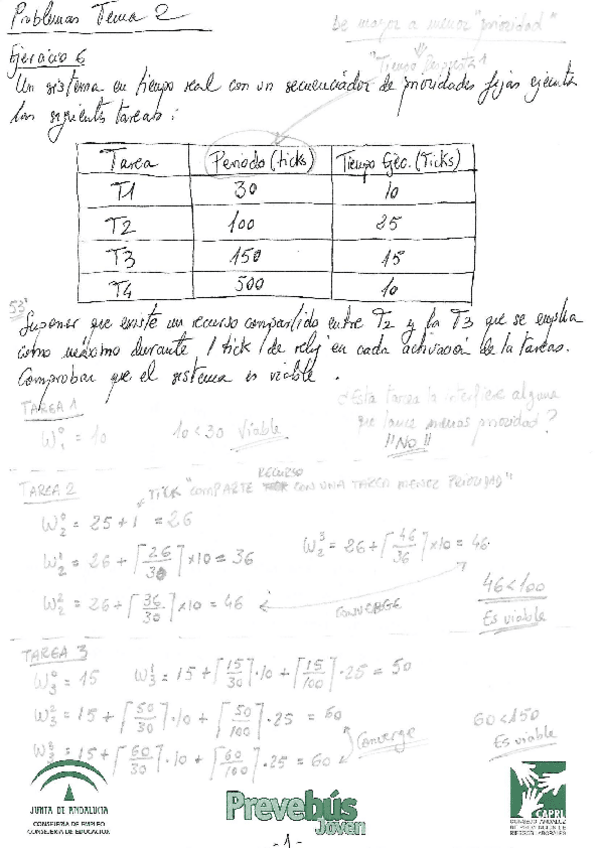 Problemas Tema 2
De mayor a menor "prioridad"
Ejercicio 6
"Tiempo Respuesta"
Un sistema en tiempo real con un secuenciador de prioridades fijas ejecuta
las siguientes tareas:
Tarea | Periodo (ticks) | Tiempo Ejec. (Ticks)
T1 | 30 | 10
T2 | 100 | 25
T3 | 150 | 15
T4 | 500 | 10
Suponer que existe un recurso compartido entre T2 y la T3 que se emplea
como máximo durante 1 tick de reloj en cada activación de la tareas.
Comprobar que el sistema es viable.
TAREA 1
W₁⁰ = 10 10<30 Viable
¿Esta tarea la interfiere alguna
que tiene menos prioridad?
!!No!!
TAREA 2
TICK "COMPARTE RECURSO CON UNA TAREA MENOR PRIORIDAD"
W₂⁰ = 25 + 1 = 26
W₂¹ = 26 + ⌈26/30⌉ x10 = 36
W₂³ = 26 + ⌈46/36⌉ x10 = 46
W₂² = 26 + ⌈36/30⌉ x10 = 46
CONVERGE
46<100
Es viable
TAREA 3
W₃⁰ = 15 W₃¹ = 15 + ⌈15/30⌉·10 + ⌈15/100⌉·25 = 50
W₃² = 15 + ⌈50/30⌉·10 + ⌈50/100⌉·25 = 60
60<150
Es viable
Converge
= 15 + ⌈60/30⌉·10 + ⌈60/100⌉·25 = 60
JUNTA DE ANDALUCIA
CONSEJERÍA DE EMPLEO
CONSEJERÍA DE EDUCACIÓN
Prevebús
Joven
CAPRL
CONSEJO ANDALUZ
DE PREVENCIÓN DE
RIESGOS LABORALES
- 1 -